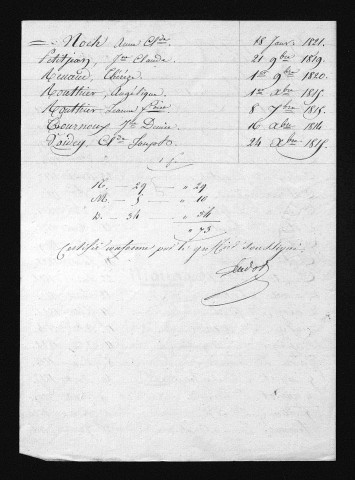 = Noch Anne Cl.de 18 Janv. 1821.
Petitjean, J.ne Claude 21 9bre 1819.
Renaud, Thérèse 1er 9bre 1820.
Routhier Angélique 1er Xbre 1815.
Routhier Jeanne 8 7bre 1815.
Tournoux J.ne Denise 16 Xbre 1814
Voidey, Cl.de Joseph. 24 Xbre 1815.
N. — 29 — " 29
M. — 5 — " 10
D. — 34 — " 34
" 73
Certifié conforme par le greffier soussigné